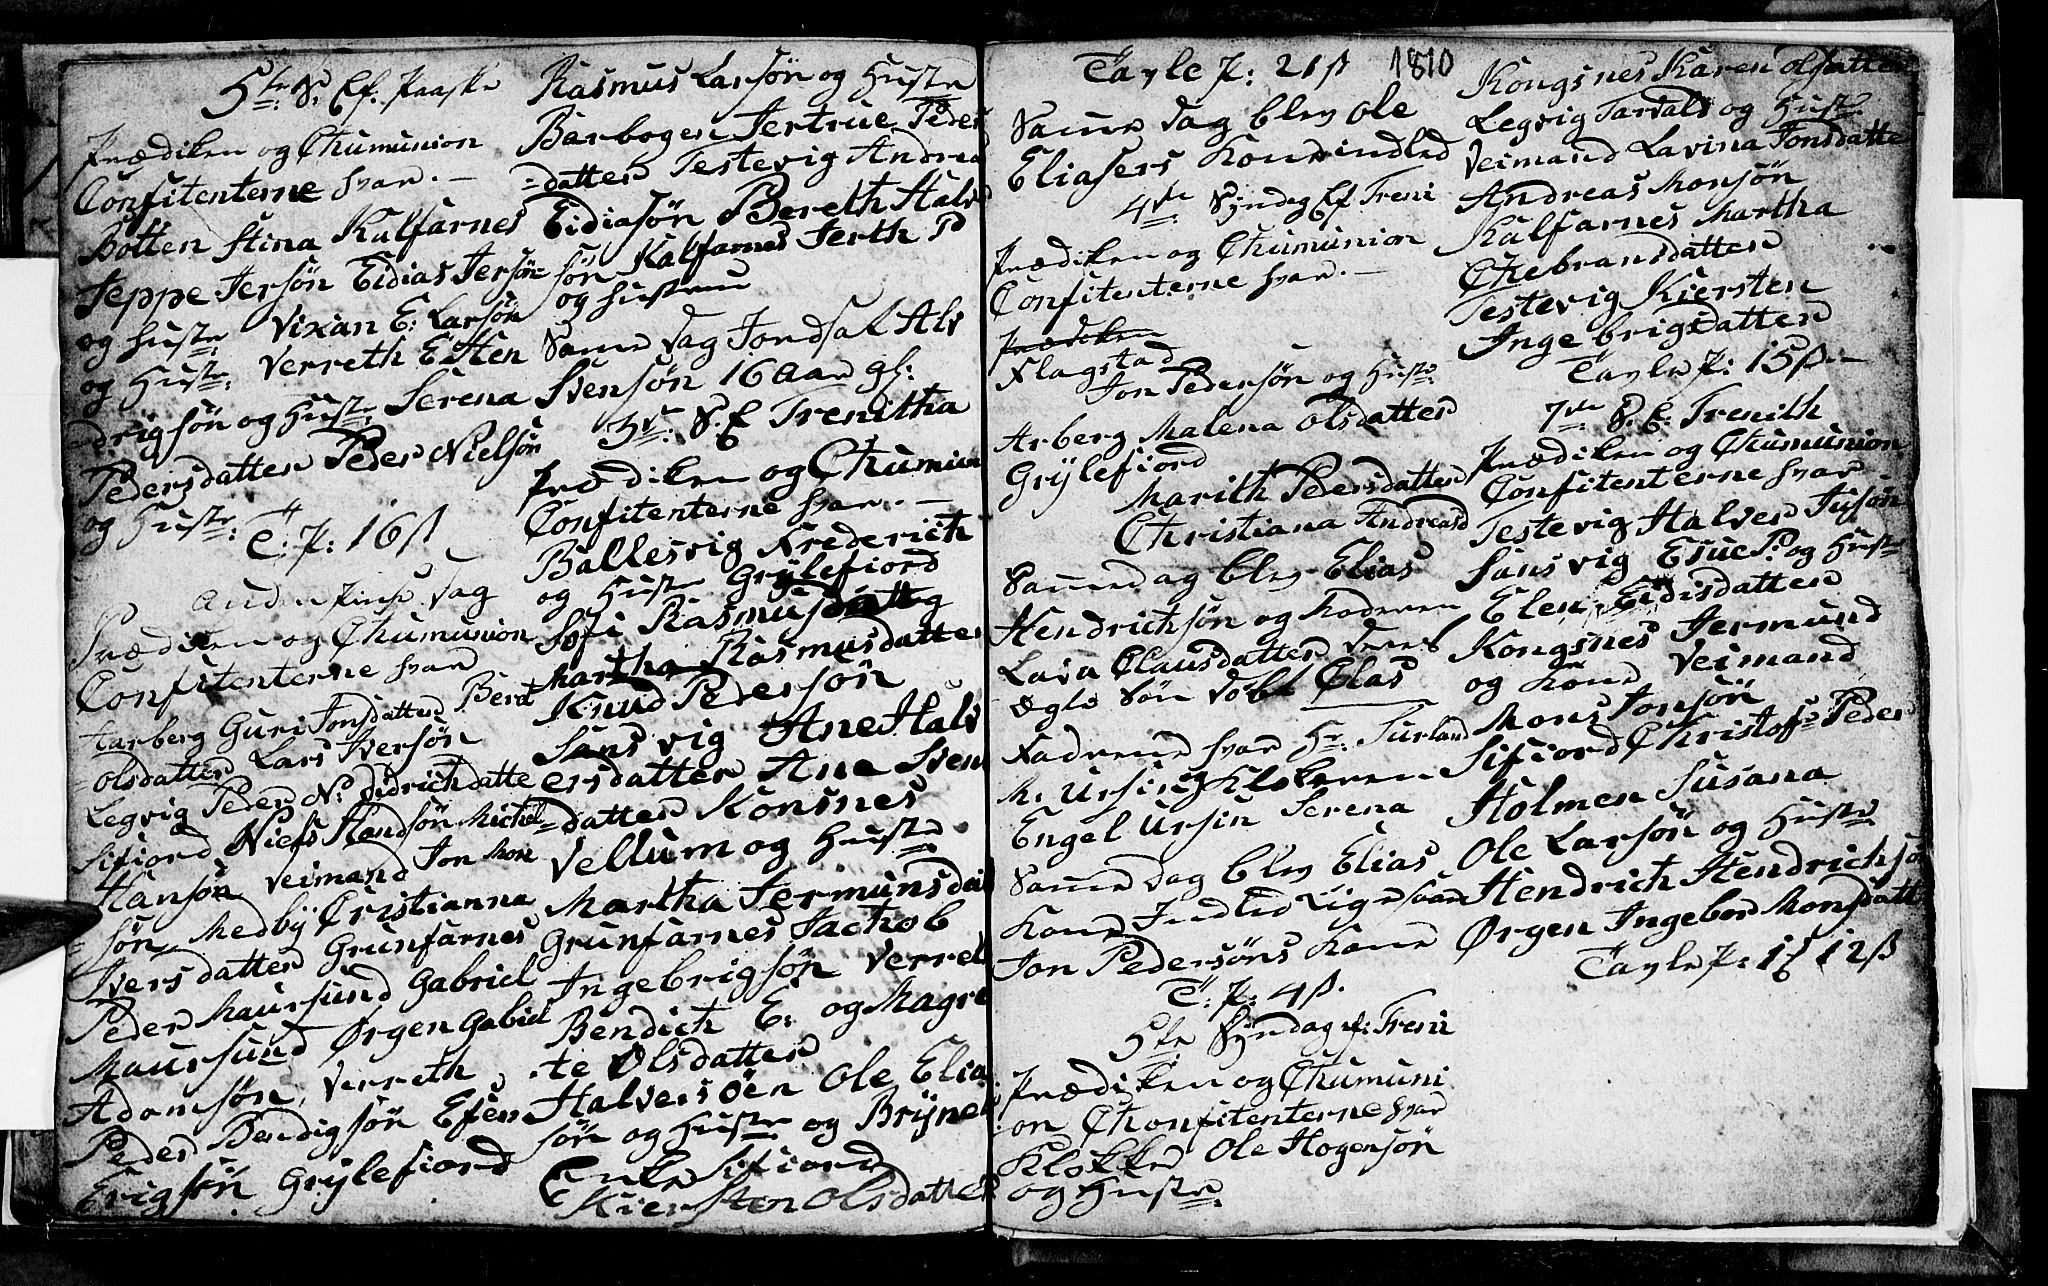 5te S. Ef. Paaske
Prædiken og Chumunion
Confitenterne hvar. —
Botten Stina Kalfarnes
Jeppe Jersön Eidias Jersön
og Hustr: Vixan E: Larsön
og Hustr: Verreth Esten
=drigsön og Hustr: Serena
Pedersdatter Peder Nielsön
og Hustr:
T: P: 16 ß
Anden Pinse Dag
Prædiken og Chumunion
Confitenterne hvar
Aarberg Guri Jonsdatter Bert
=olsdatter Lars Iversön
Legvig Peder N: Didrichdatte
Sifiord Niels Handsön Michel
Hansön Veimand Jon Mon
=sön Medbÿ Cristianna
Iversdatter Grunfarnes
Peder Maursund Gabriel
Maursund Ørgen Gabriel
Adamsön, Verreth
Peder Bendigsön Esen
Erigsön Grÿlefiord
Rasmus Larsön og Hustr
Barbogen Jertrue Peder
=datter Testevig Andrea
Eidiasön Bereth Halv
sön Kalfarnes Jerth P
og Hustru
Same Dag Jondsal Alv
Svensön 16 Aar gl:
3die S. Ef Trenitha
Prædiken og Chumiun
Confitenterne hvar. —
Ballesvig Frederich
og Hustr Grÿlefiord
Sofi Rasmusdatter
Martha Rasmusdatter
Knud Pedersön
Sansvig Ane Halv
ersdatter Ane Sven
=datter Konsnes
Vellum og Hustr
Martha Jermunsdat
Grunfarnes Jachob
Ingebrigsön Verret
Bendich E: og Magre
-te Olsdatter
Halversöen Ole Elia
sön og Hustr og Brÿnel
Enke Sifiord
Kiersten Olsdatter
Tavle P: 21 ß 1810
Same Dag blev Ole
Eliasers Kone indled
4de Syndag Ef Treni
Prædiken og Chumunion
Confitenterne hvar. —
Prædiken
Flagstad
Jon Pedersön og Hustr:
Arberg Malena Olsdatter
Grÿlefiord
Marith Pedersdatter
Christiana Andreasd
Same dag blev Elias
Hendrichsön og Moderen
Lava Clausdatter deres
Ægte Sön döbt Clas
Fadrene hvar Hr: Jurland
M. Ursin og Klokeren
Engel Ursin Serena
Same dag blev Elias
Kone Indled Ligesaa
Jon Pedersöns Kone
T: P: 4 ß.
5te Syndag ef: Treni
Prædiken og Chumuni
:on Chonfitenterne hvar
Klokker Ole Hogensön
og Hustr
Kongsnes Karen Olsdatter
Legvig Tarvals og Hustr
Veimand Lavina Jonsdatte
Andreas Monsön
Kalfarnes Martha
Ckebransdatter
Testevig Kiersten
Ingebrigsdatter
Tavle P: 15 ß —
7de S. E: Trenith
Prædiken og Chumunion
Confitenterne hvar
Testevig Halver Jusön
Sansvig Esue P: og Hustr
Elen Eidisdatter
Kongsnes Jermund
og Kone Veimand
Mons Jonsön
Sifiord Christofr Peder
Holmen Susana
Ole Larsön og Hustr
Hendrich Hendrichsön
Ørgen Ingebor Monsdatt
Tavle P: 1 f 12 ß